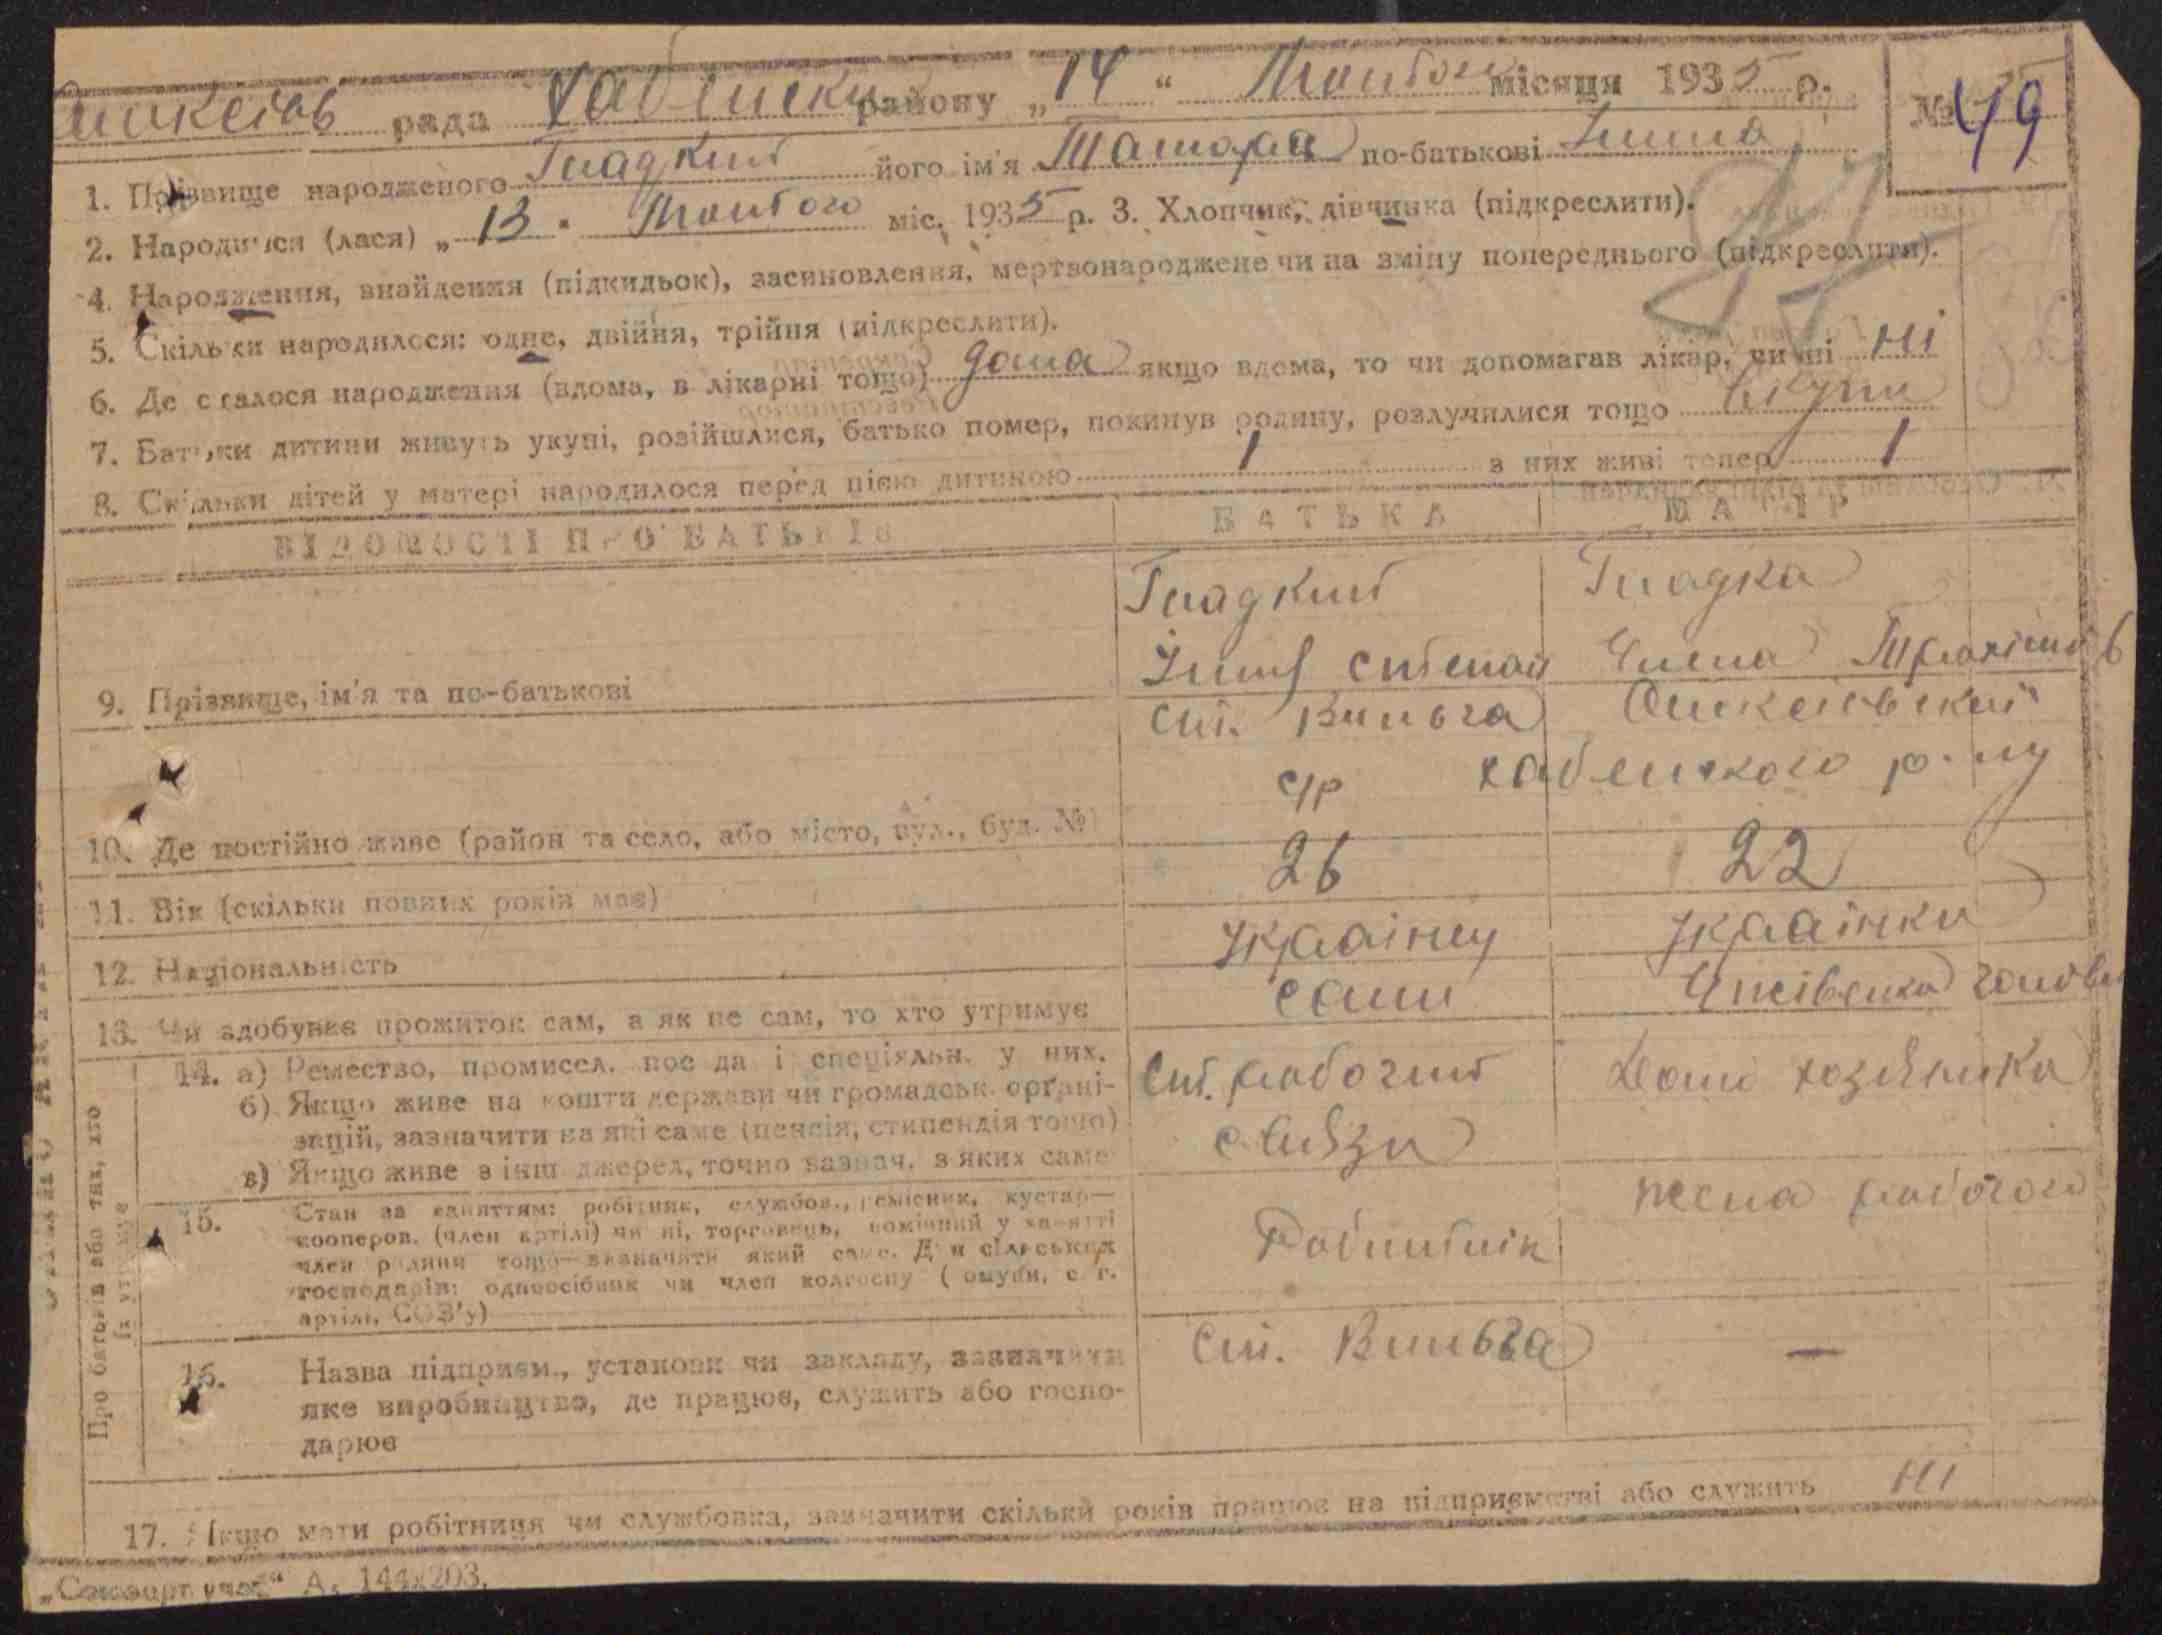 рада Хабенський району „14“ Лютого місяця 1935 р. № 49
1. Прізвище народженого Гладкий його ім'я Тамара по-батькові
2. Народився (лася) „13“ Лютого міс. 1935 р. 3. Хлопчик, дівчинка (підкреслити).
4. Народження, знайдення (підкидьок), засиновлення, мертвонароджене чи на зміну попереднього (підкреслити).
5. Скільки народилося: одне, двійня, трійня (підкреслити).
6. Де сталося народження (вдома, в лікарні тощо) дома якщо вдома, то чи допомагав лікар, чи ні ні
7. Батьки дитини живуть укупі, розійшлися, батько помер, покинув родину, розлучилися тощо вкупи
8. Скільки дітей у матері народилося перед цією дитиною 1 з них живі тепер 1
ВІДОМОСТІ ПРО БАТЬКІВ БАТЬКА МАТІР
Гладкий Гладка
степан Трохимов
9. Прізвище, ім'я та по-батькові
ст. Вильча
с/р хабенского р-ну
10. Де постійно живе (район та село, або місто, вул., буд. №)
11. Вік (скільки повних років має) 26 22
12. Національність українец украінка
13. Чи здобуває прожиток сам, а як не сам, то хто утримує сам
14. а) Ремество, промисел, посада і спеціяльн. у них. ст. рабочий Домо хозяйка
б) Якщо живе на кошти держави чи громадськ. органі-
зацій, зазначити на які саме (пенсія, стипендія тощо) связи
в) Якщо живе з інш джерел, точно зазнач. з яких саме
15. Стан за заняттям: робітник, службов., ремісник, кустар— жена рабочого
кооперов. (член артілі) чи ні, торговець, помічний у занятті
член родини тощо—зазначити який саме. Для сільських
господарів: одноосібник чи член колгоспу (комуни, с. г.
артілі, СОЗ'у)
16. Назва підприєм., установи чи закладу, зазначити ст. Вильча —
яке виробництво, де працює, служить або госпо-
дарює
Про батьків або тих, хто
їх утримує
17. Якщо мати робітниця чи службовка, зазначити скільки років працює на підприємстві або служить ні
А. 144х203.